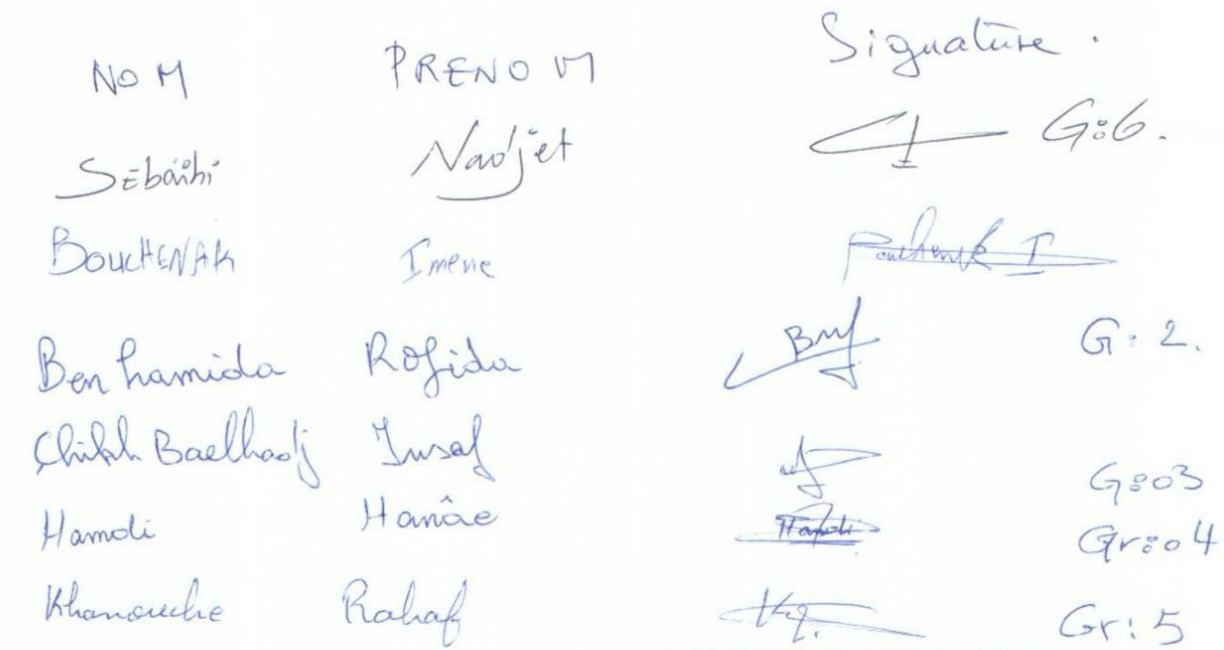 NOM PRENOM Signature.
Sebaihi Nadjet G:6.
BOUCHENAK Imene Bouchenak I
Ben hamida Rofida G: 2.
Chikh Baelhadj Insaf G:03
Hamdi Hanâe Hamdi Gr:04
Khanouche Rahaf Gr: 5